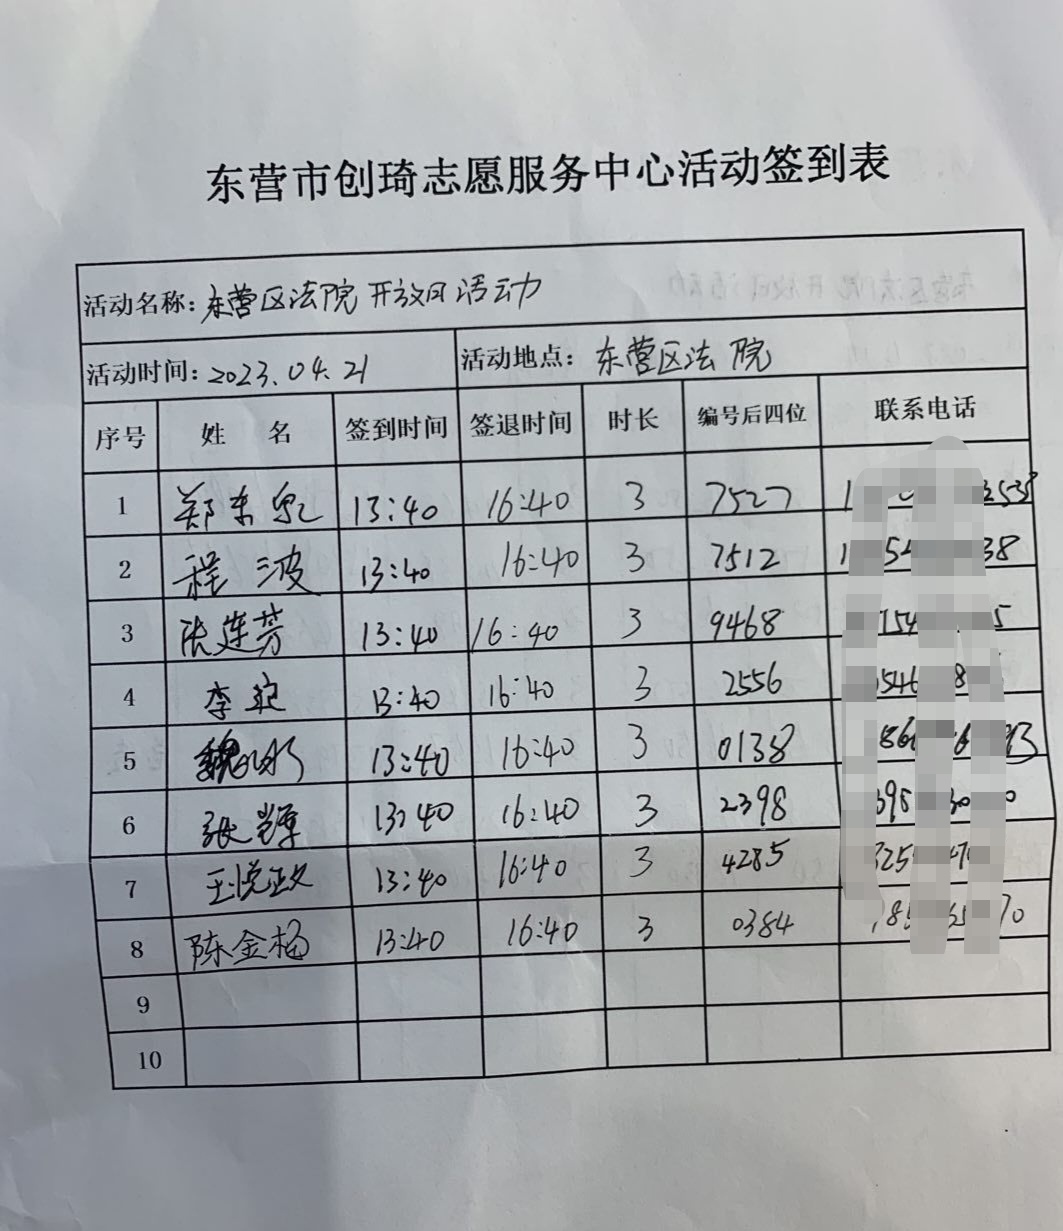 东营市创琦志愿服务中心活动签到表
活动名称：东营区法院开放日活动
活动时间：2023.04.21 活动地点：东营区法院
序号 姓 名 签到时间 签退时间 时长 编号后四位 联系电话
1 郑东 13:40 16:40 3 7527
2 程波 13:40 16:40 3 7512
3 张连芳 13:40 16:40 3 9468
4 李 13:40 16:40 3 2556
5 魏 13:40 16:40 3 0138
6 张 13:40 16:40 3 2398
7 王悦 13:40 16:40 3 4285
8 陈金梅 13:40 16:40 3 0384
9
10